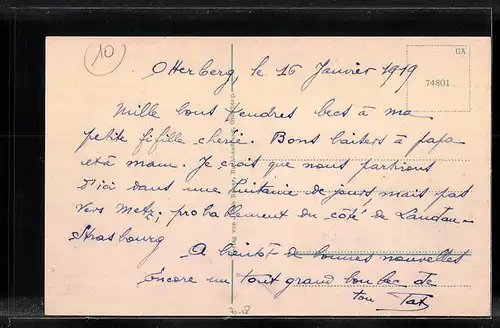 10
Otterberg, le 16 Janvier 1919
GA
74801
Mille bons tendres becs à ma
petite fifille chérie. Bons baisers à papa
et à mam. Je crois que nous partirons
d'ici dans une huitaine de jours, mais pas
vers Metz; probablement du côté de Landau-
Strasbourg
A bientôt de bonnes nouvelles
Encore un tout grand bon bec de
ton Tat